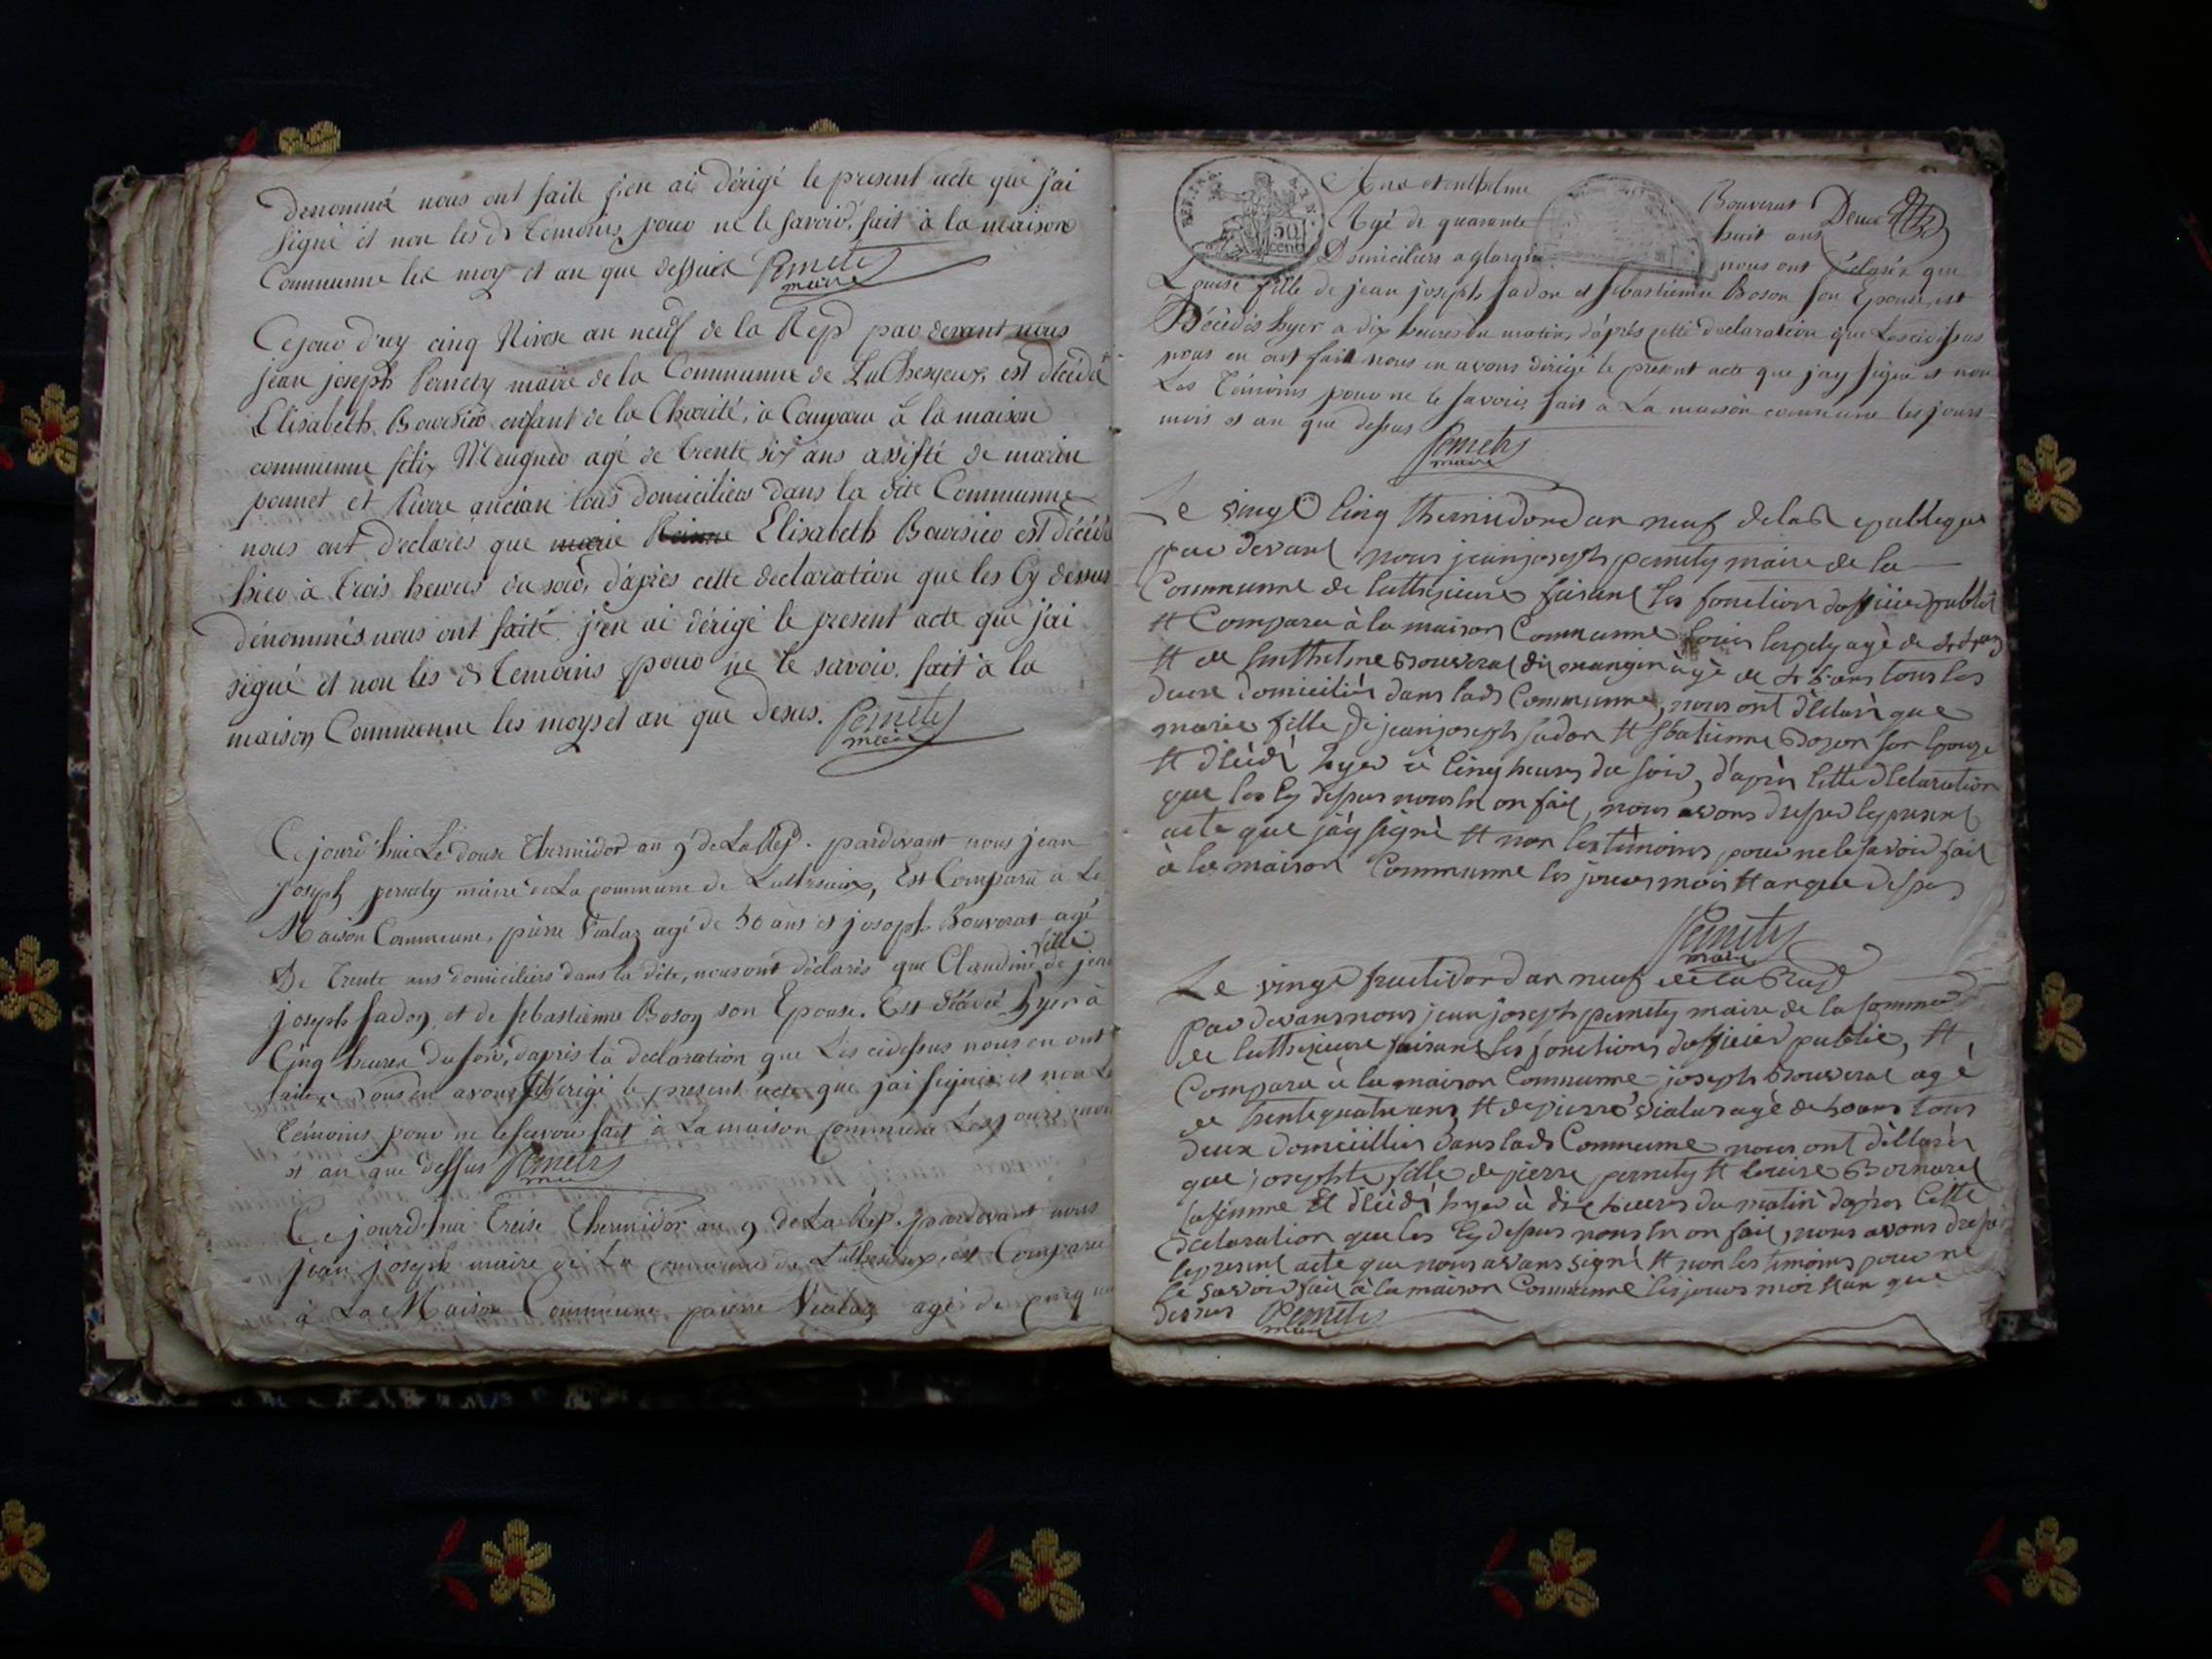 denommé nous ont faite j'en ai dérigé le present acte que j'ai
signé et non les ds temoins pour ne le savoir, fait à la maison
Communne les moy et an que dessus Pernety
maire
Cejour d'uy cinq Nivose an neuf de la Rep par devant nous
jean joseph Pernety maire de la Communne de Luthezieux, est décédé
Elisabeth Boursier enfant de la Charité, à Comparu à la maison
communne felix Meugnier agé de trente six ans assisté de
pomet et Pierre ancian tous domiciliers dans la dite Communne
nous ont declarés que marie Elisabeth Boursier est décédé
hier à trois heures du soir, d'après cette declaration que les Cy dessus
dénommés nous ont faite j'en ai dérigé le present acte que j'ai
signé et non les ds temoins pour ne le savoir. fait à la
maison Communne les moys et an que desus. Pernety
maire
Cejourd'hui Le douse thermidor an 9 de La Rep. pardevant nous jean
joseph pernety maire de La commune de Luthesieux, Est Comparu à La
Maison Commune, pierre Vialaz agé de 50 ans et joseph Bouverat agé
De trente ans domiciliers dans la dite, nous ont déclarés que Claudine fille de jean
joseph fadon et de sebastienne Boson son Epouse. Est décédé hyer à
Cinq heures du soir, d'après la declaration que Les cidessus nous en ont
faite, Nous en avons dérigé le present acte que j'ai signés et non Les
témoins pour ne le savoir fait à La maison commune Les jours mois
et an que dessus Pernety
maire
Ce jourdhui treise thermidor an 9 de La Rep. pardevant nous
jean joseph maire de La commune de Luthesieux, est Comparu
à La Maison Commune pierre Vialaz agé de
REP. FRA.
50
cent
Anthelme Bouverat Deux
Agé de quarante huit ans
Domiciliers nous ont déclarés que
Louise fille de jean joseph fadon et sebastienne Boson son Epouse, est
Décédés hyer a dix heures du matin, d'après cette declaration que Les cidessus
nous en ont fait nous en avons dirigé le present acte que j'ay signé et non
Les témoins pour ne le savoir, fait a La maison commune les jours
mois et an que dessus
Pernety
maire
Le vingt Cinq thermidor d'an neuf de la Republique
par devant nous jean joseph pernety maire de la
Communne de luthezieux faisant les fonction d'officier public
et Comparu à la maison Communne louis agé de
et de Anthelme Bouverat dit mangin agé de ans tous les
deux domiciliés dans lads Communne, nous ont déclaré que
marie fille de jean joseph fadon et sbatienne Bozon son Epouze
et décédé hyer à Cinq heures du soir, d'après Cette declaration
que les Cy dessus nous en on fait, nous avons dressé le present
acte que j'ay signé et non les témoins, pour ne le savoir fait
à la maison Communne les jours mois et an que dessus
Pernety
maire
Le vingt fructidor d'an neuf de la Rep
par devant nous jean joseph pernety maire de la Commune
de luthezieux faisant les fonctions d'officier public, et
Comparu à la maison Communne joseph Bouverat agé
de trente quatre ans, et de pierre Vialas agé de 50 ans tous
deux domicilliés dans lads Communne nous ont déclarés
que josephte fille de pierre pernety et louise Bornard
sa femme Et décédé hyer à dix heures du matin d'après Cette
déclaration que les Cy dessus nous en on fait, nous avons dressé
le present acte que nous avons signé et non les temoins pour ne
le savoir fait à la maison Communne les jours mois et an que
dessus Pernety
maire